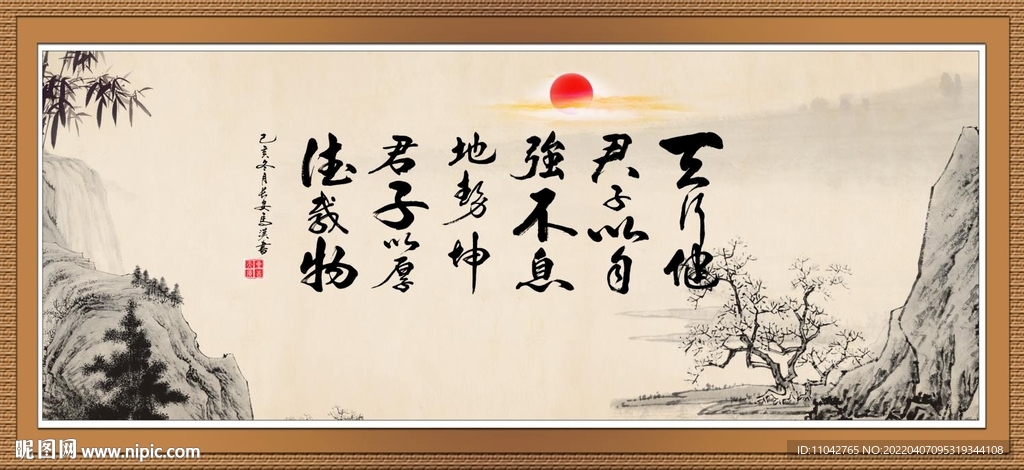 天行健
君子以自
強不息
地勢坤
君子以厚
德載物
己亥冬月長安馬漢書
昵图网 www.nipic.com
ID:11042765 NO:20220407095319344108